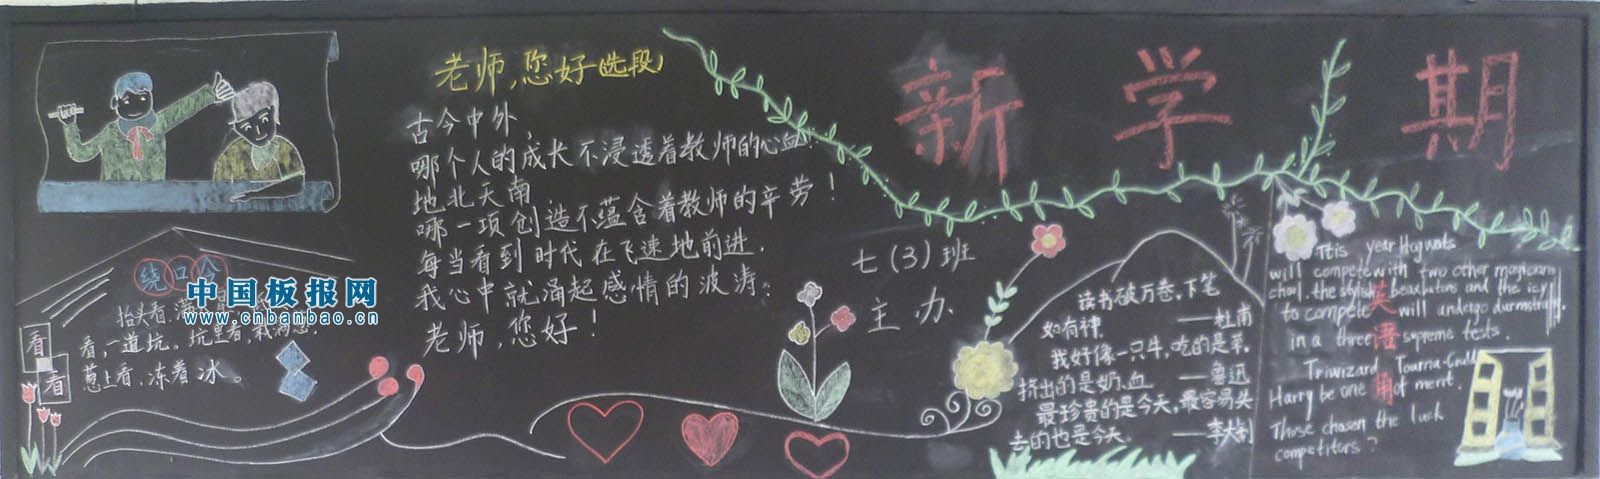 老师,您好(选段)
古今中外
哪个人的成长不浸透着教师的心血!
地北天南
哪一项创造不蕴含着教师的辛劳!
每当看到时代在飞速地前进.
我心中就涌起感情的波涛:
老师,您好!
新学期
七(3)班
主办
绕口令
抬头看,满
看,一道坑。坑里看,栽满葱。
葱上看,冻着冰。
看
看
中国板报网
www.cnbanbao.cn
读书破万卷,下笔
如有神. ——杜甫
我好像一只牛,吃的是草,
挤出的是奶、血 ——鲁迅
最珍贵的是今天,最容易失
去的也是今天. ——李大钊
英语角
This year Hogwats
will compete with two other magicians
chool. the stylish beauxbatons and the icy
to compete will undergo durmstrang
in a three supreme tests.
Triwizard Tourna-
Harry be one of merit.
Those chosen the luck
competitors?